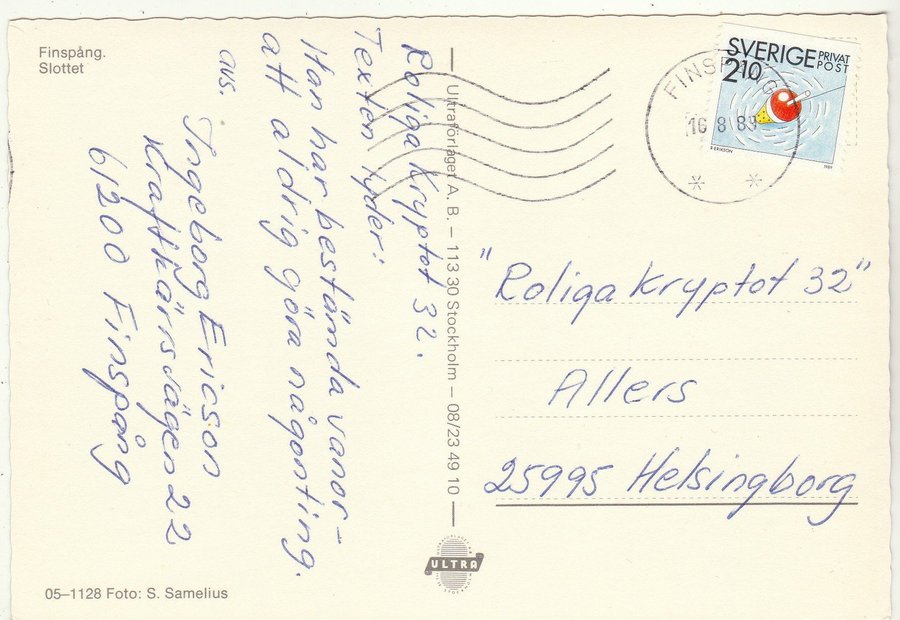 Finspång.
Slottet
Roliga Kryptot 32.
Texten lyder:
Han har bestämda vanor-
att aldrig göra någonting.
avs.
Ingeborg Ericson
Kraftkärrsvägen 22
61200 Finspång
Ultraförlaget A. B. – 113 30 Stockholm – 08/23 49 10
ULTRA
SVERIGE PRIVAT
POST
2.10
FINSPÅNG
16 8 89
"Roliga Kryptot 32"
Allers
25995 Helsingborg
05–1128 Foto: S. Samelius